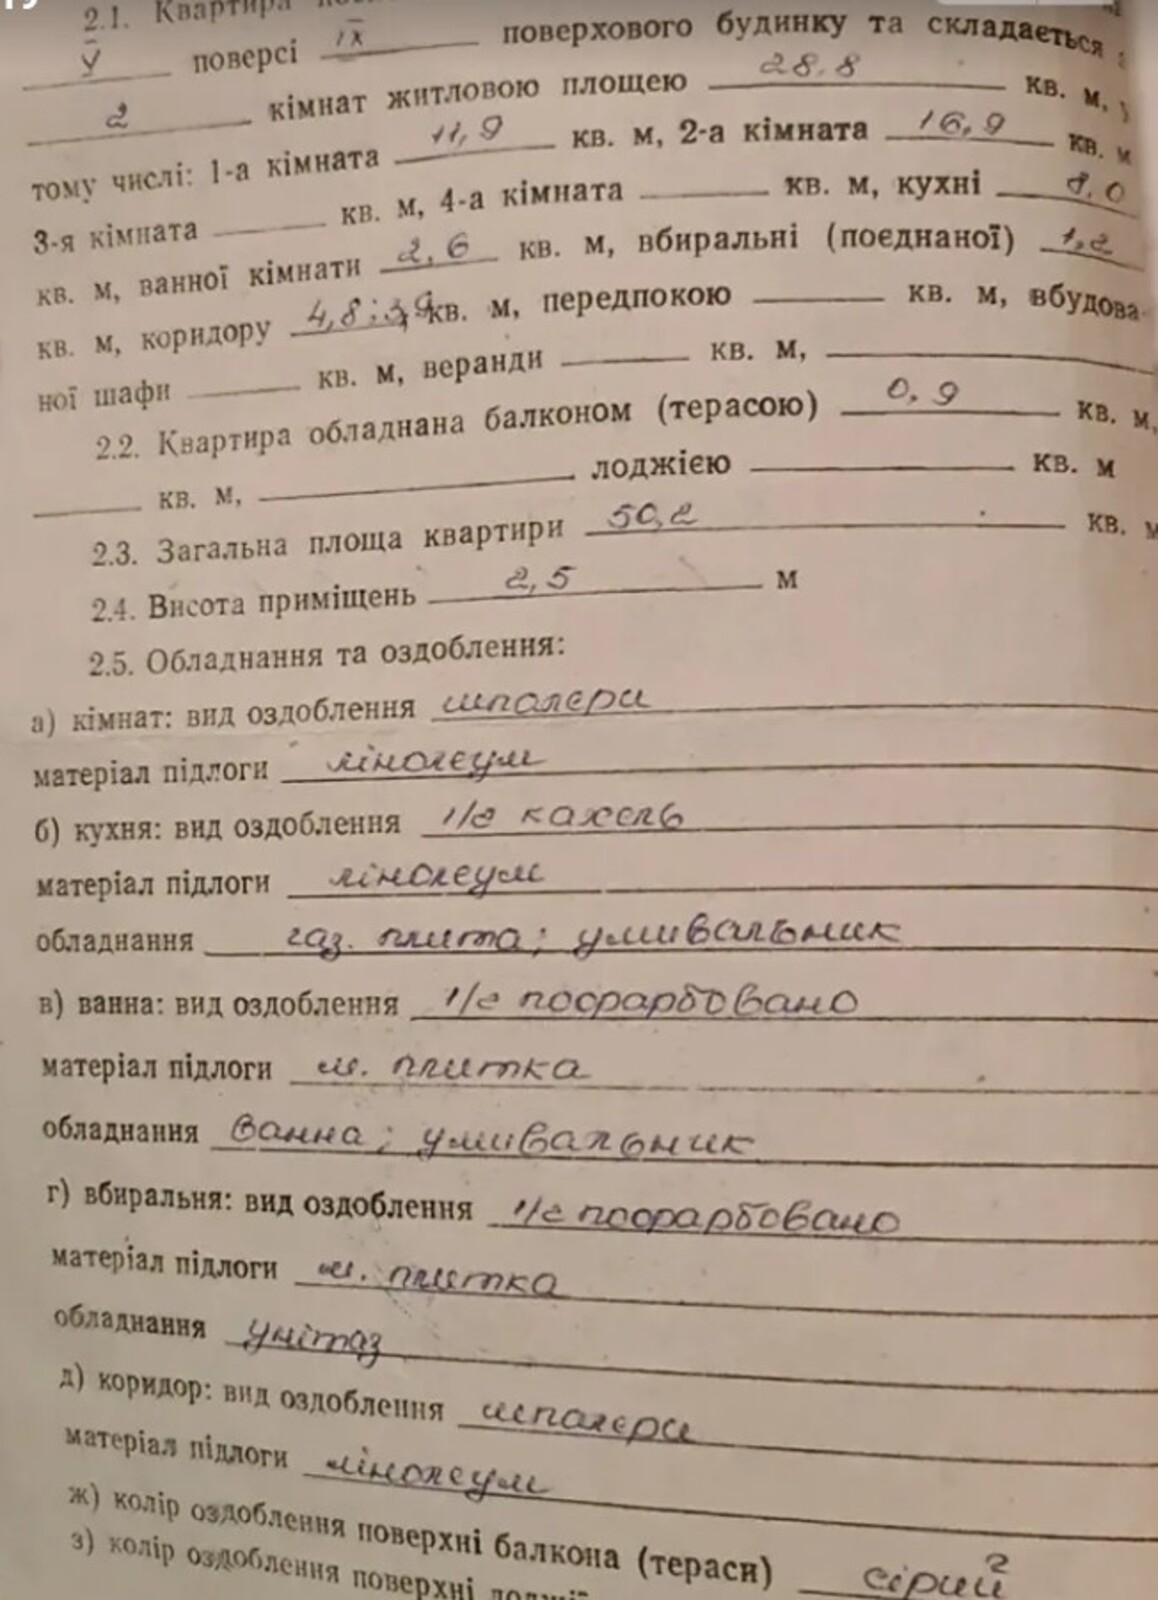 2.1. Квартира
V поверсі IX поверхового будинку та складається з
2 кімнат житловою площею 28,8 кв. м, у
тому числі: 1-а кімната 11,9 кв. м, 2-а кімната 16,9 кв. м
3-я кімната ___ кв. м, 4-а кімната ___ кв. м, кухні 8,0
кв. м, ванної кімнати 2,6 кв. м, вбиральні (поєднаної) 1,2
кв. м, коридору 4,8; 3,9 кв. м, передпокою ___ кв. м, вбудова-
ної шафи ___ кв. м, веранди ___ кв. м, ___
2.2. Квартира обладнана балконом (терасою) 0,9 кв. м,
___ кв. м, ___ лоджією ___ кв. м
2.3. Загальна площа квартири 50,2 кв. м
2.4. Висота приміщень 2,5 м
2.5. Обладнання та оздоблення:
а) кімнат: вид оздоблення шпалери
матеріал підлоги лінолеум
б) кухня: вид оздоблення 1/2 кахель
матеріал підлоги лінолеум
обладнання газ. плита; умивальник
в) ванна: вид оздоблення 1/2 пофарбовано
матеріал підлоги м. плитка
обладнання ванна; умивальник
г) вбиральня: вид оздоблення 1/2 пофарбовано
матеріал підлоги м. плитка
обладнання унітаз
д) коридор: вид оздоблення шпалери
матеріал підлоги лінолеум
ж) колір оздоблення поверхні балкона (тераси) сірий
з) колір оздоблення поверхні